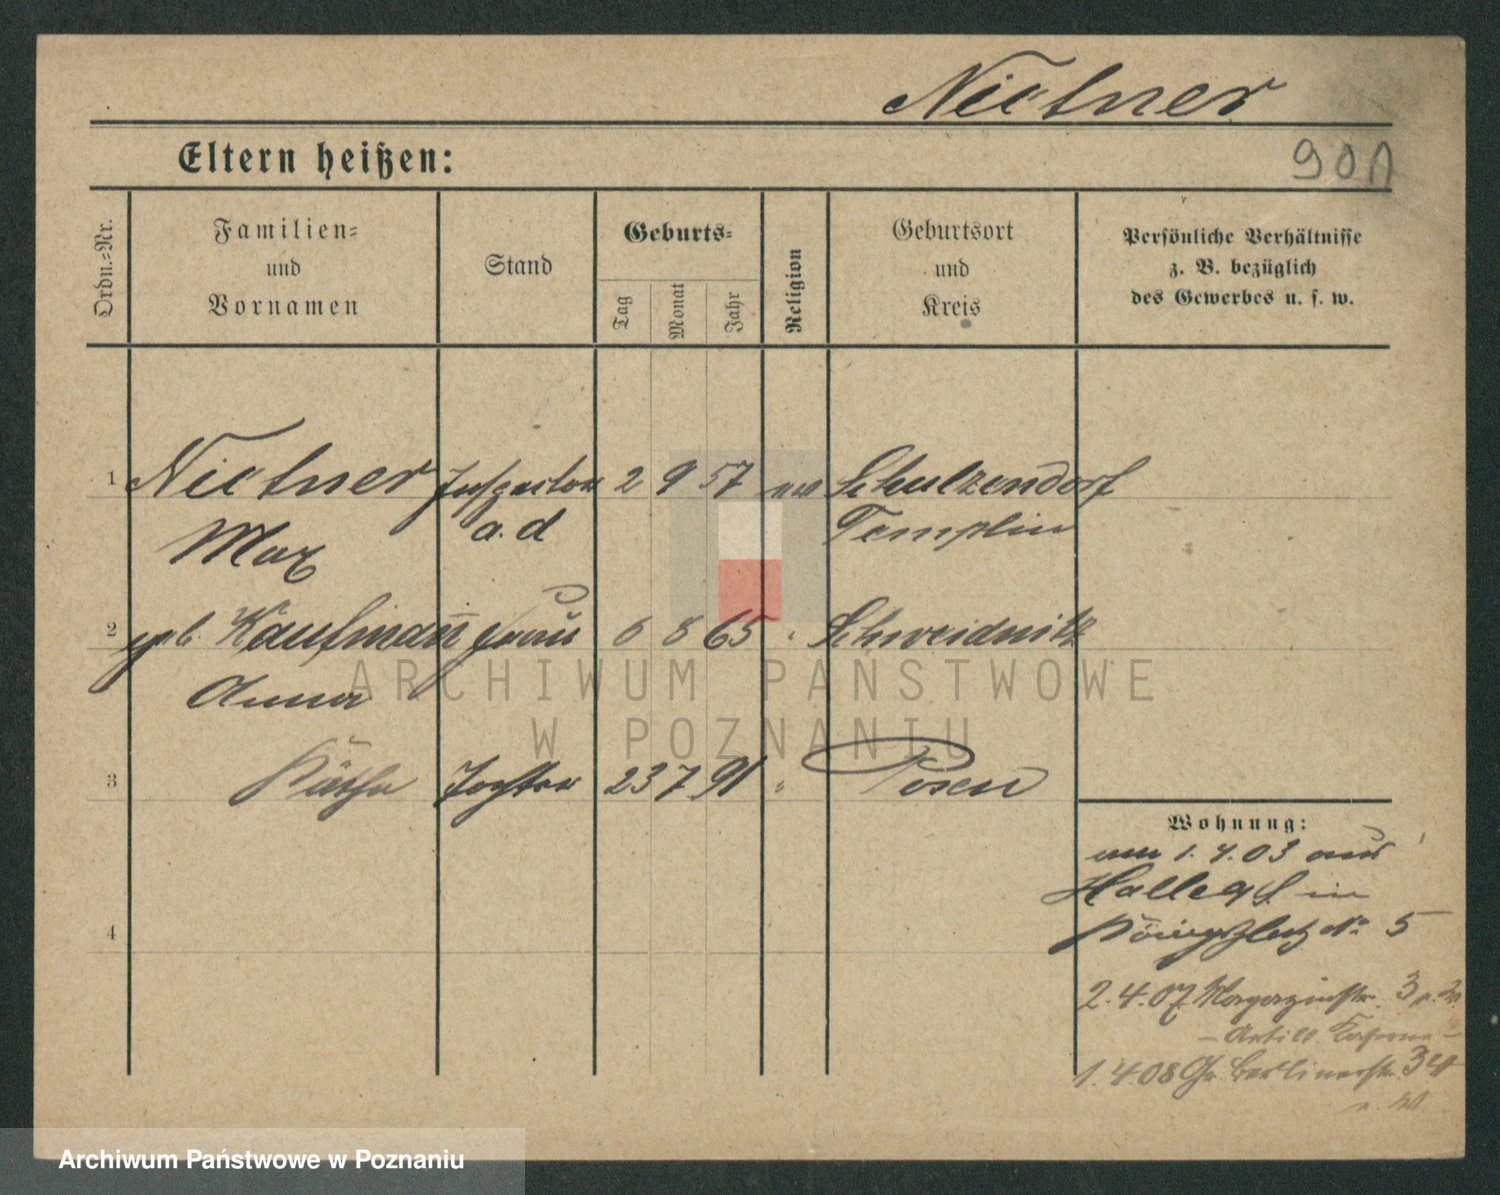 Nietner
Eltern heißen:
901
Ordn.-Nr.
Familien-
und
Vornamen
Stand
Geburts-
Tag
Monat
Jahr
Religion
Geburtsort
und
Kreis
Persönliche Verhältnisse
z. B. bezüglich
des Gewerbes u. s. w.
1 Nietner Inspector 2 9 57 ev Schulzendorf
Max a. d Templin
2 geb. Kaufmann Frau 6 8 65 " Schweidnitz
Anna
3 Käthe Tochter 23 7 91 " Posen
4
Wohnung:
am 1. 4. 03 aus
Halle a/S. in
Königsplatz No 5
2. 4. 07 Magazinstr. 3
- Artill. Kaserne -
1. 4. 08 Gr. Berlinerstr. 34
ARCHIWUM PAŃSTWOWE
W POZNANIU
Archiwum Państwowe w Poznaniu